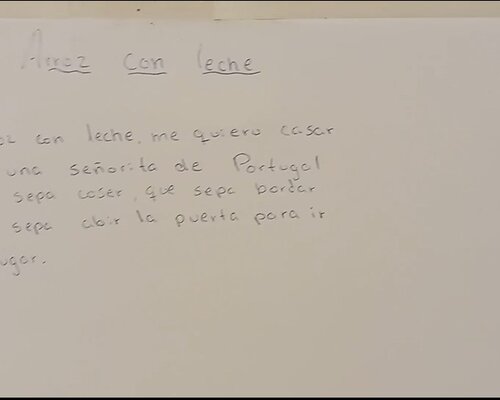 Arroz con leche
oz con leche, me quiero casar
una señorita de Portugal
sepa coser, que sepa bordar
sepa abir la puerta para ir
ugar.